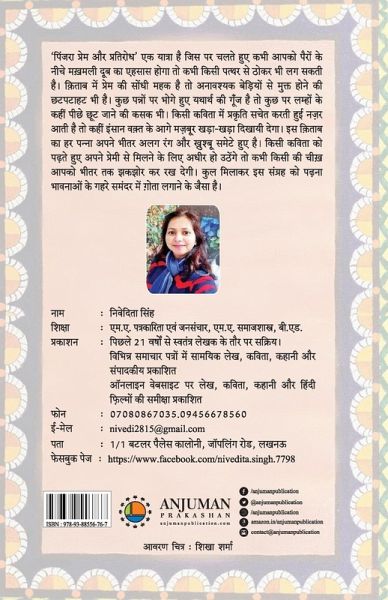 'पिंजरा प्रेम और प्रतिरोध' एक यात्रा है जिस पर चलते हुए कभी आपको पैरों के
नीचे मख़मली दूब का एहसास होगा तो कभी किसी पत्थर से ठोकर भी लग सकती
है। क़िताब में प्रेम की सोंधी महक है तो अनावश्यक बेड़ियों से मुक्त होने की
छटपटाहट भी है। कुछ पन्नों पर भोगे हुए यथार्थ की गूँज है तो कुछ पर लम्हों के
कहीं पीछे छूट जाने की कसक भी। किसी कविता में प्रकृति सचेत करती हुई नज़र
आती है तो कहीं इंसान वक़्त के आगे मज़बूर खड़ा-खड़ा दिखायी देगा। इस क़िताब
का हर पन्ना अपने भीतर अलग रंग और ख़ुश्बू समेटे हुए है। किसी कविता को
पढ़ते हुए अपने प्रेमी से मिलने के लिए अधीर हो उठेंगे तो कभी किसी की चीख़
आपको भीतर तक झकझोर कर रख देगी। कुल मिलाकर इस संग्रह को पढ़ना
भावनाओं के गहरे समंदर में ग़ोता लगाने के जैसा है।
नाम : निवेदिता सिंह
शिक्षा : एम.ए. पत्रकारिता एवं जनसंचार, एम.ए. समाजशास्त्र, बी.एड.
प्रकाशन : पिछले 21 वर्षों से स्वतंत्र लेखक के तौर पर सक्रिय।
विभिन्न समाचार पत्रों में सामयिक लेख, कविता, कहानी और
संपादकीय प्रकाशित
ऑनलाइन वेबसाइट पर लेख, कविता, कहानी और हिंदी
फ़िल्मों की समीक्षा प्रकाशित
फोन : 07080867035,09456678560
ई-मेल : nivedi2815@gmail.com
पता : 1/1 बटलर पैलेस कालोनी, जॉपलिंग रोड, लखनऊ
फेसबुक पेज : https://www.facebook.com/nivedita.singh.7798
ISBN : 978-93-88556-76-7
ANJUMAN
PRAKASHAN
anjumanpublication.com
/anjumanpublication
@anjumanpublication
/anjumanpublication
amazon.in/anjumanpublication
/anjumanpublication
आवरण चित्र : शिखा शर्मा